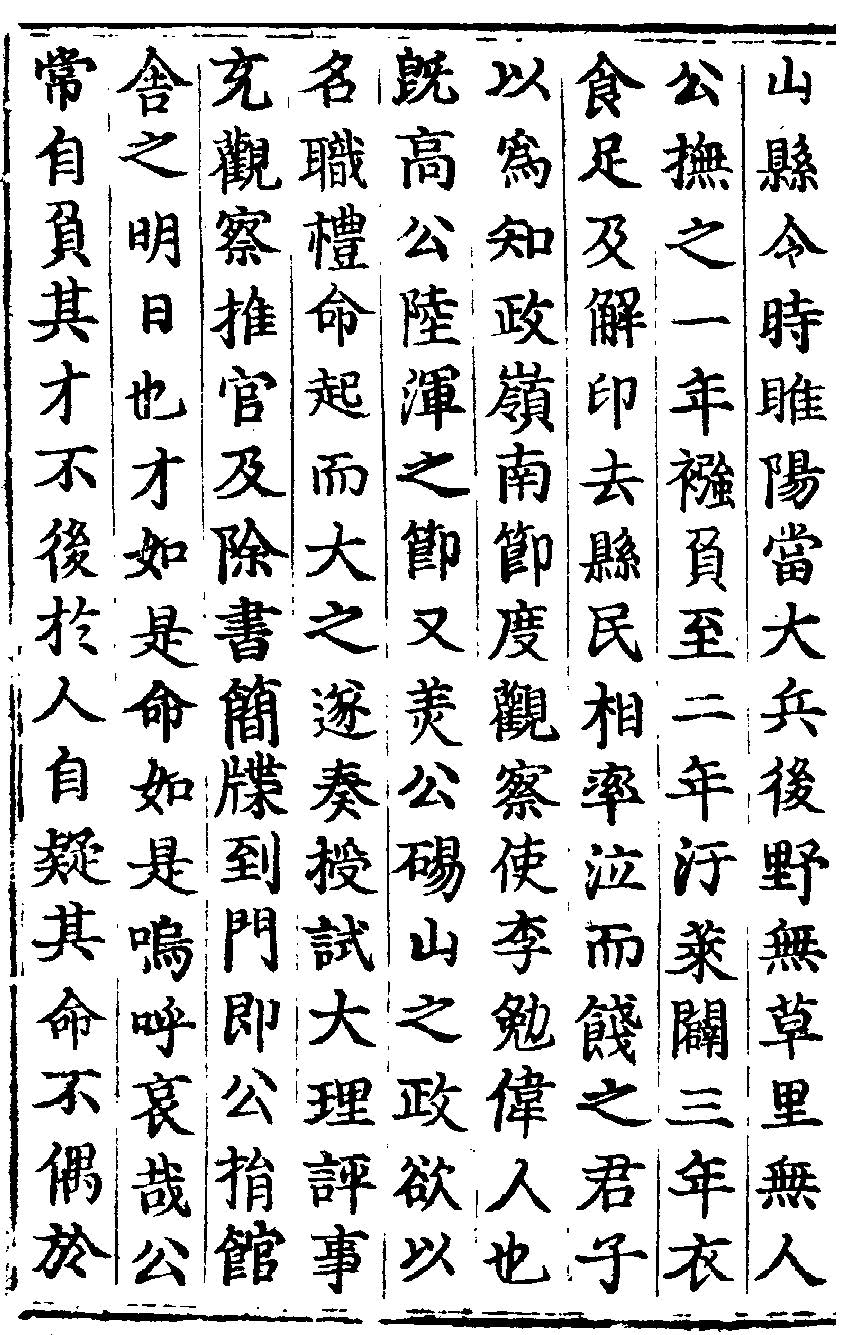 山縣令時睢陽當大兵後野無草里無人
公撫之一年襁負至二年汙萊闢三年衣
食足及解印去縣民相率泣而餞之君子
以爲知政嶺南節度觀察使李勉偉人也
旣高公陸渾之節又羙公碭山之政欲以
名職禮命起而大之遂奏授試大理評事
充觀察推官及除書簡牒到門即公捐館
舍之明日也才如是命如是嗚呼哀哉公
常自負其才不後於人自疑其命不偶於